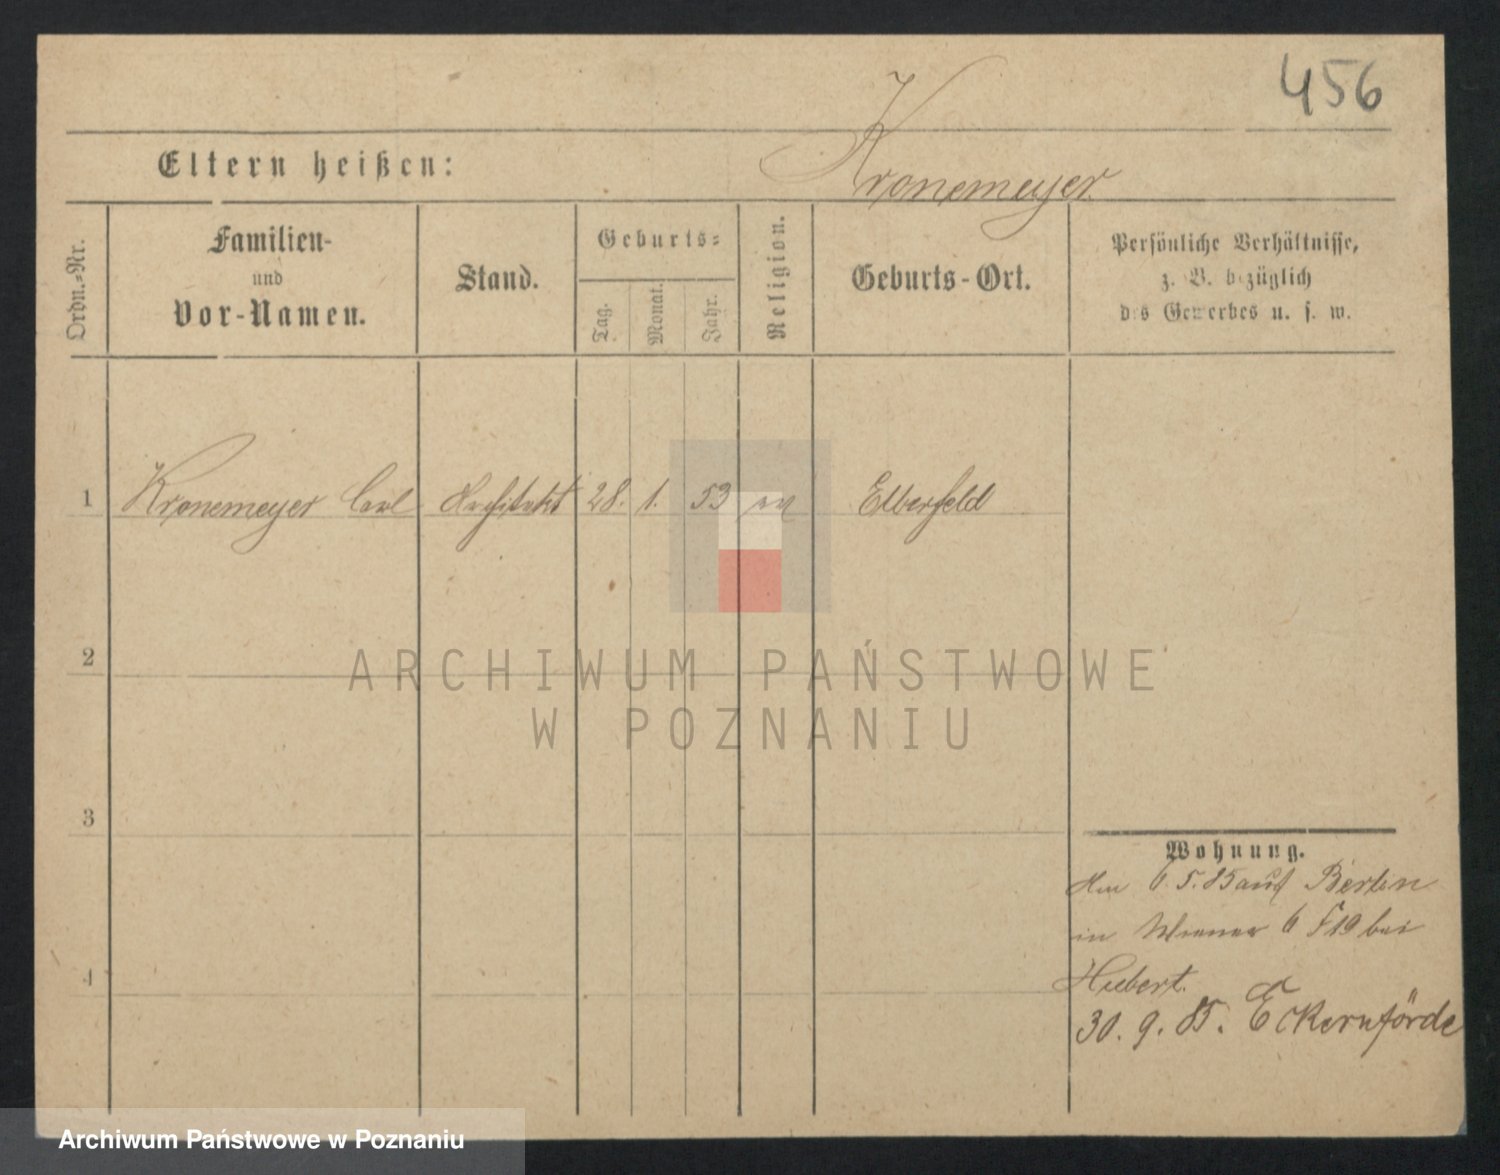 456
Eltern heißen:
Kronemeyer
Ordn.-Nr.
Familien-
und
Vor-Namen.
Stand.
Geburts-
Tag.
Monat.
Jahr.
Religion.
Geburts-Ort.
Persönliche Verhältnisse,
z. B. bezüglich
des Gewerbes u. s. w.
1 Kronemeyer Carl Architekt 28. 1. 53 ev Elberfeld
2
3
4
Wohnung.
Am 6.5.85 aus Berlin
in Wiener 6 bei
Hubert.
30. 9. 85. Eckernförde
ARCHIWUM PAŃSTWOWE
W POZNANIU
Archiwum Państwowe w Poznaniu